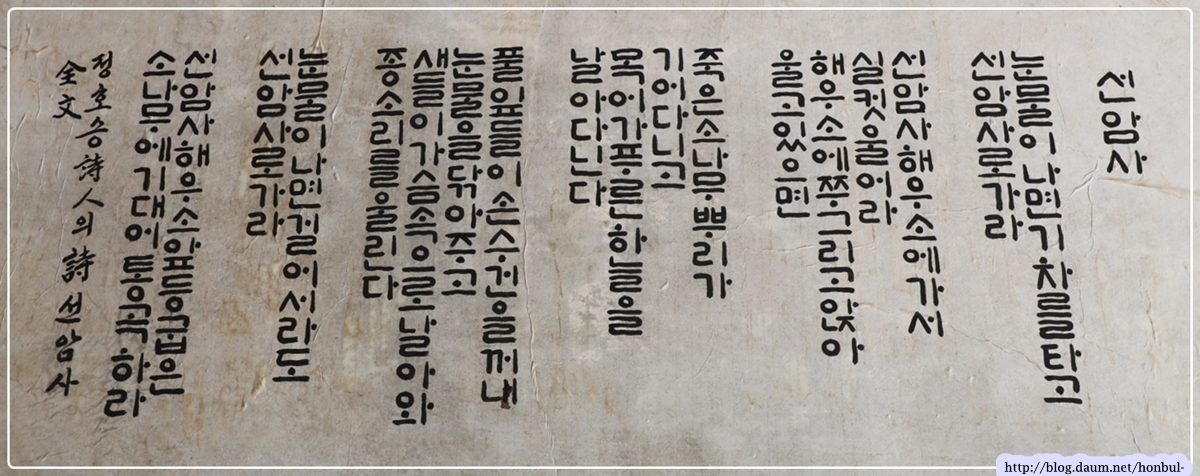 선암사
눈물이 나면 기차를 타고
선암사로 가라
선암사 해우소에 가서
실컷 울어라
해우소에 쭈그리고 앉아
울고 있으면
죽은 소나무 뿌리가
기어다니고
목어가 푸른 하늘을
날아다닌다
풀잎들이 손수건을 꺼내
눈물을 닦아주고
새들이 가슴 속으로 날아와
종소리를 울린다
눈물이 나면 걸어서라도
선암사로 가라
선암사 해우소 앞 등 굽은
소나무에 기대어 통곡하라
정호승 詩人의 詩 선암사
全文
http://blog.daum.net/honbul-